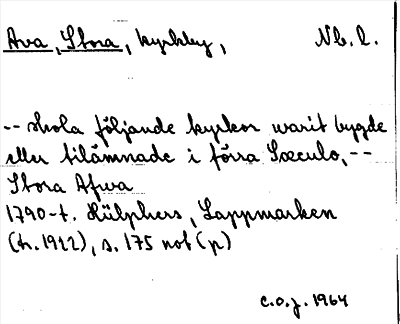 Ava, Stora, kyrkby, Nb. l.
-- skola följande kyrkor warit bygde
eller tilämnade i förra Sæculo, --
Stora Afwa
1790-t. Hülphers, Lappmarken
(tr. 1912), s. 175 not (p)
c.o.j. 1964